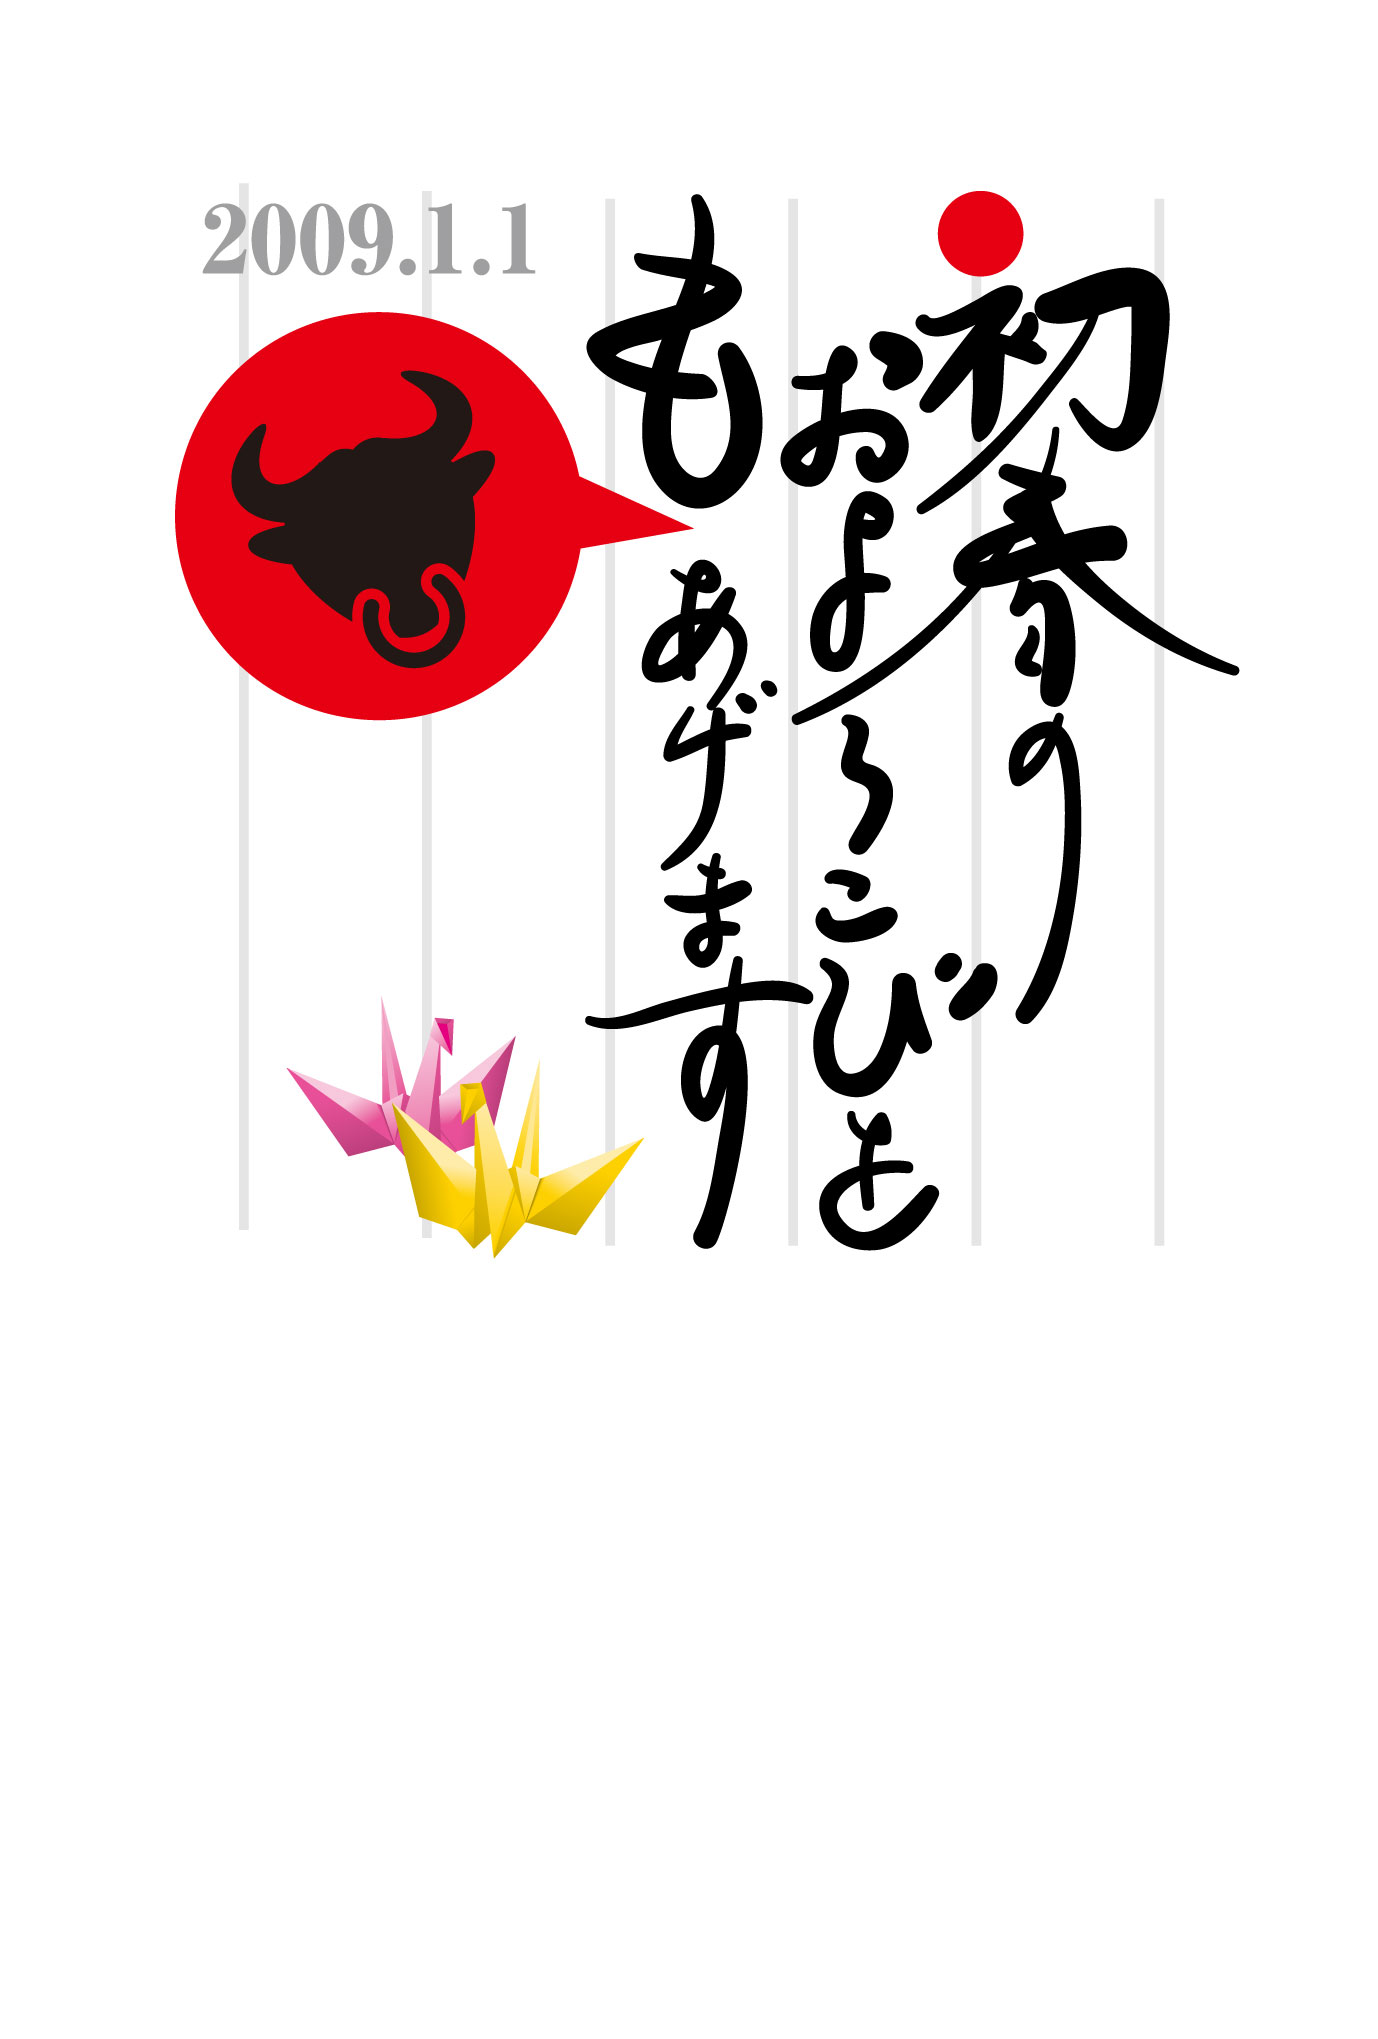 初春の
およろこびを
もあげます
2009.1.1